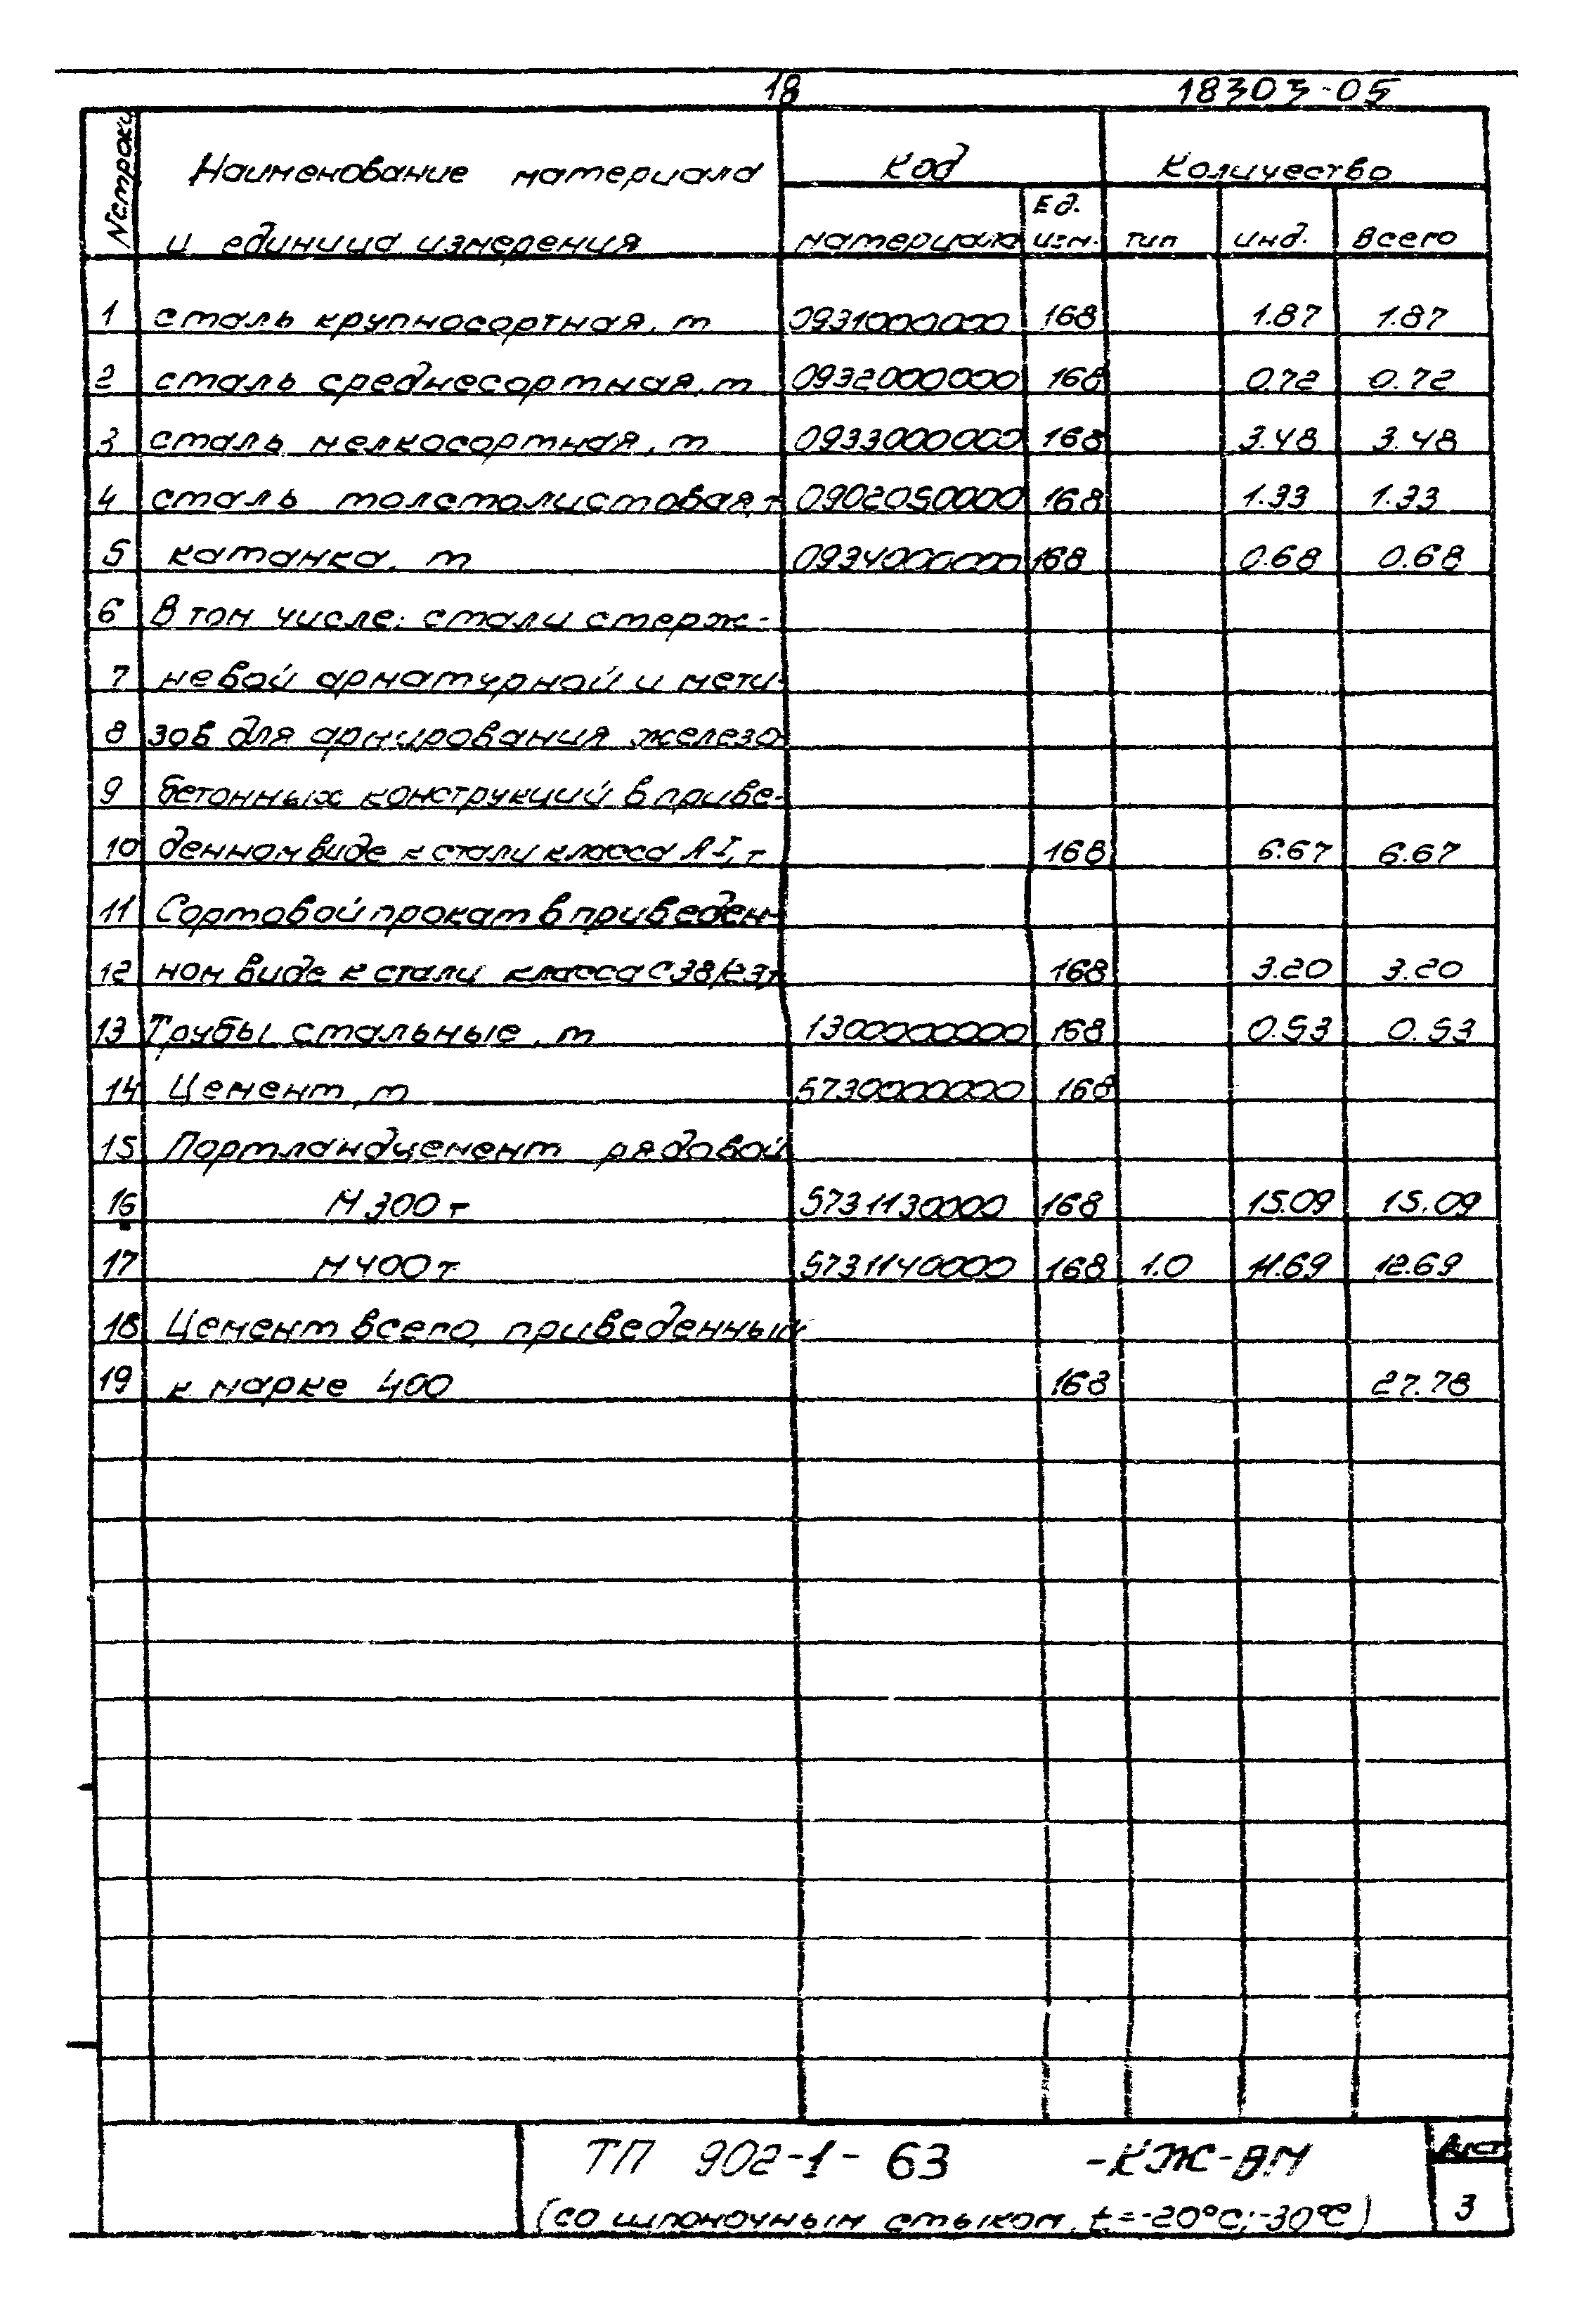 18 18303-05
№ строки Наименование материала Код Количество
Ед.
и единица измерения материала изм. тип инд. всего
1 сталь крупносортная, т 0931000000 168 1.87 1.87
2 сталь среднесортная, т 0932000000 168 0.72 0.72
3 сталь мелкосортная, т 0933000000 168 3.48 3.48
4 сталь толстолистовая, т 0902050000 168 1.33 1.33
5 катанка, т 0934000000 168 0.68 0.68
6 В том числе: стали стерж-
7 невой арматурной и мети-
8 зов для армирования железо-
9 бетонных конструкций в приве-
10 денном виде к стали класса А-I, т 168 6.67 6.67
11 Сортовой прокат в приведен-
12 ном виде к стали класса С38/23, т 168 3.20 3.20
13 Трубы стальные, т 1300000000 168 0.53 0.53
14 Цемент, т 5730000000 168
15 Портландцемент рядовой
16 М 300 т 5731130000 168 15.09 15.09
17 М 400 т 5731140000 168 1.0 11.69 12.69
18 Цемент всего, приведенный
19 к марке 400 168 27.78
ТП 902-1-63 -КЖ-ВМ Лист
(со шпоночным стыком, t=-20°С; -30°С) 3